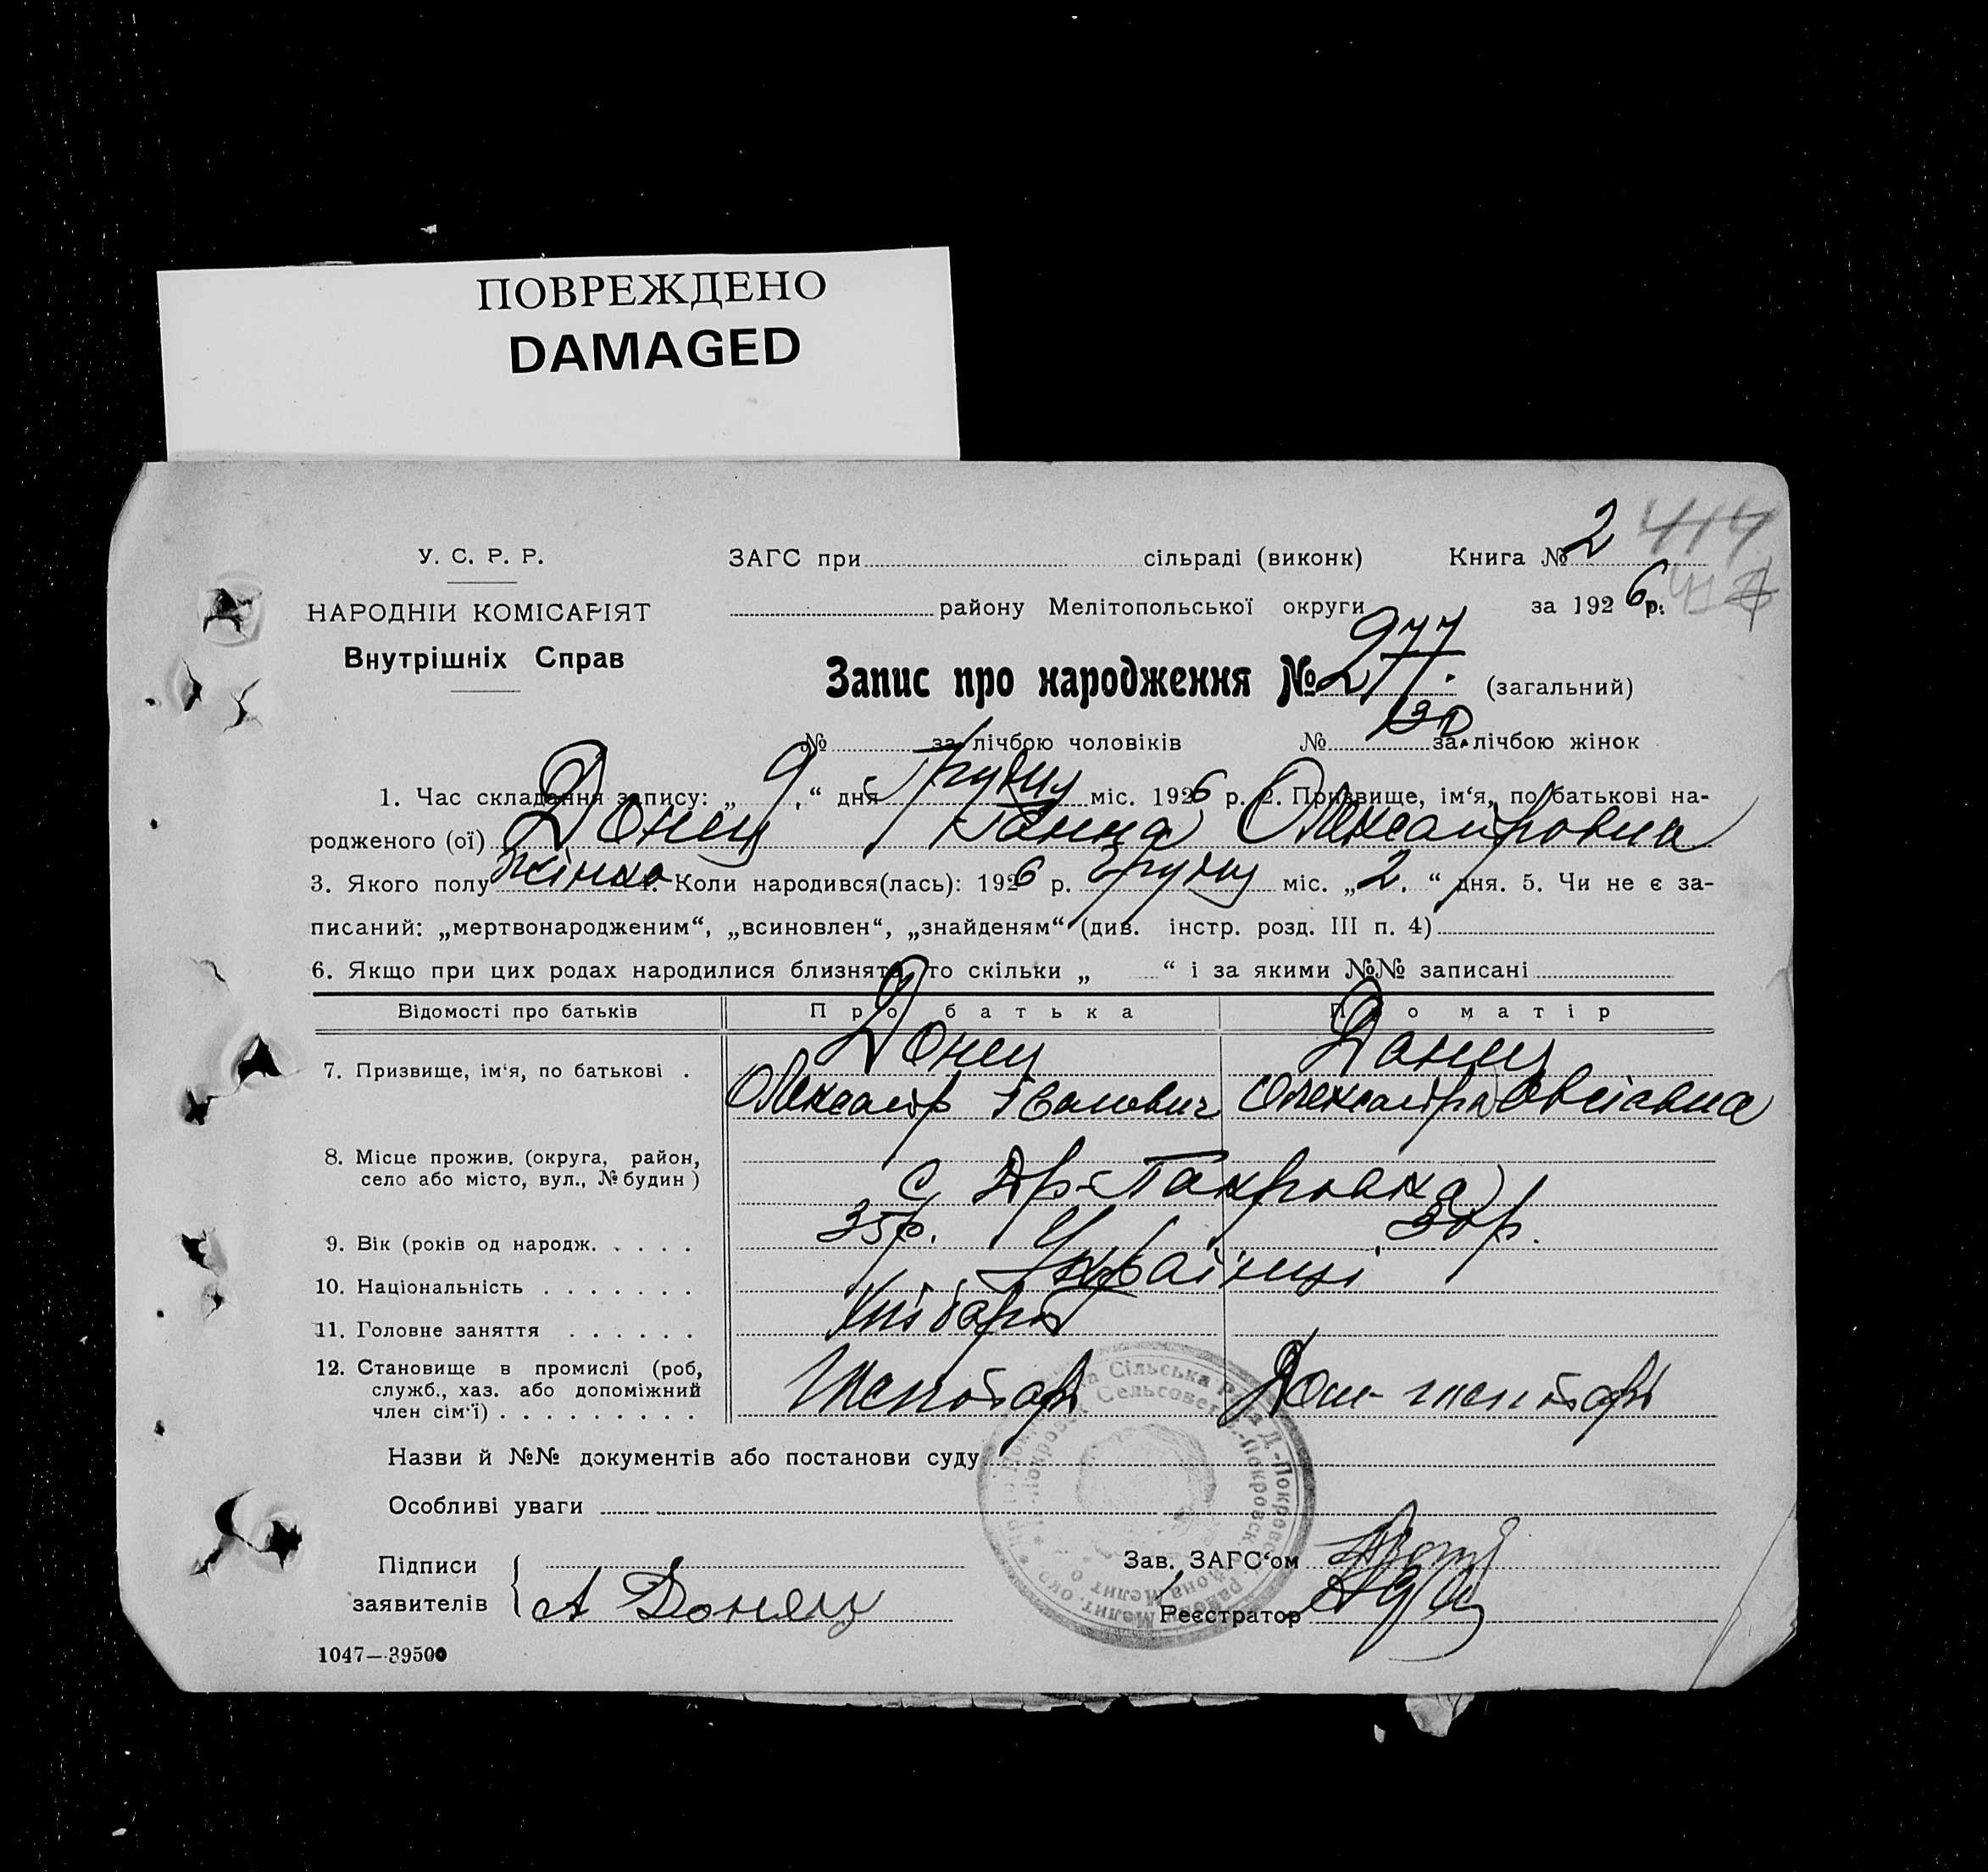 ПОВРЕЖДЕНО
DAMAGED
У. С. Р. Р.
НАРОДНІЙ КОМІСАРІЯТ
Внутрішніх Справ
ЗАГС при сільраді (виконк) Книга № 2 414
району Мелітопольської округи за 1926 р.
977
Запис про народження № 277. (загальний)
130
№ за лічбою чоловіків № за лічбою жінок
1. Час складання запису: „ 9 “ дня Грудня міс. 1926 р. 2. Призвище, ім‘я, по батькові на-
родженого (ої) Донец Ганна Олександровна
3. Якого полу жінка 4. Коли народився(лась): 1926 р. Грудня міс. „ 2. “ дня. 5. Чи не є за-
писаний: „мертвонародженим“, „всиновлен“, „знайденям“ (див. інстр. розд. III п. 4)
6. Якщо при цих родах народилися близнята, то скільки „ “ і за якими №№ записані
Відомості про батьків Про батька Про матір
7. Призвище, ім‘я, по батькові . Донец Донец
Олександр Іванович Олександра
8. Місце прожив. (округа, район,
село або місто, вул., № будин) с Др-Покровка
9. Вік (років од народж. . . . . 35 р. 30 р.
10. Національність . . . . . . . Українці
11. Головне заняття . . . . . . Хлібороб
12. Становище в промислі (роб,
служб., хаз. або допоміжний
член сім‘ї) . . . . . . . . .
Назви й №№ документів або постанови суду
Особливі уваги
Підписи
заявителів А Донец
Зав. ЗАГС‘ом
Реєстратор
Сільська Рада Д.-Покровськ
Сельсовет
1047—39500